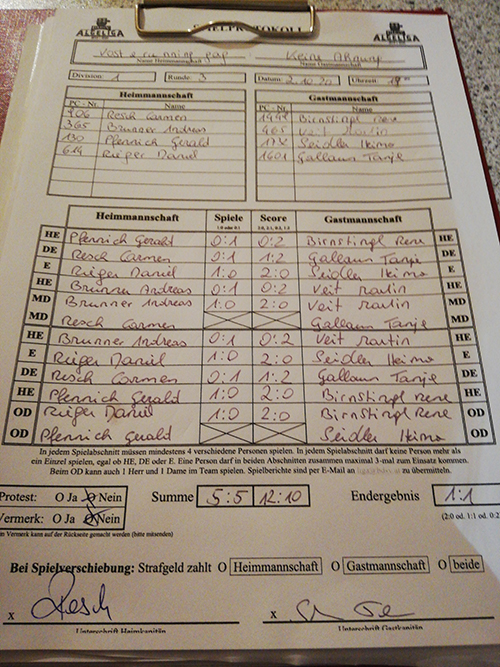 SPIELPROTOKOLL
Keine Ahnung
Name Heimmannschaft Name Gastmannschaft
Division: 1 Runde: 3 Datum: 2.10.20 Uhrzeit:
Heimmannschaft Gastmannschaft
PC - Nr. Name PC - Nr. Name
906 Resch Carmen Birnstingl Rene
365 Brunner Andreas 465 Veit Martin
130 Pfennich Gerald Seidler Heimo
614 Rüger Daniel 1601 Gallaun Tanja
Heimmannschaft Spiele Score Gastmannschaft
HE Pfennich Gerald 0:1 0:2 Birnstingl Rene HE
DE Resch Carmen 0:1 1:2 Gallaun Tanja DE
E Rüger Daniel 1:0 2:0 Seidler Heimo E
HE Brunner Andreas 0:1 0:2 Veit Martin HE
MD Brunner Andreas 1:0 2:0 Veit Martin MD
MD Resch Carmen Gallaun Tanja MD
HE Brunner Andreas 0:1 0:2 Veit Martin HE
E Rüger Daniel 1:0 2:0 Seidler Heimo E
DE Resch Carmen 0:1 1:2 Gallaun Tanja DE
HE Pfennich Gerald 1:0 2:0 Birnstingl Rene HE
OD Rüger Daniel 1:0 2:0 Birnstingl Rene OD
OD Pfennich Gerald Seidler Heimo OD
In jedem Spielabschnitt müssen mindestens 4 verschiedene Personen spielen. In jedem Spielabschnitt darf keine Person mehr als
ein Einzel spielen, egal ob HE, DE oder E. Eine Person darf in beiden Abschnitten zusammen maximal 3-mal zum Einsatz kommen.
Beim OD kann auch 1 Herr und 1 Dame im Team spielen. Spielberichte sind per E-Mail an zu übermitteln.
Protest: O Ja O Nein Summe 5:5 12:10 Endergebnis 1:1
Vermerk: O Ja O Nein (2:0 od. 1:1 od. 0:2)
Ein Vermerk kann auf der Rückseite gemacht werden (bitte mitsenden)
Bei Spielverschiebung: Strafgeld zahlt O Heimmannschaft O Gastmannschaft O beide
x Resch x
Unterschrift Heimkapitän Unterschrift Gastkapitän